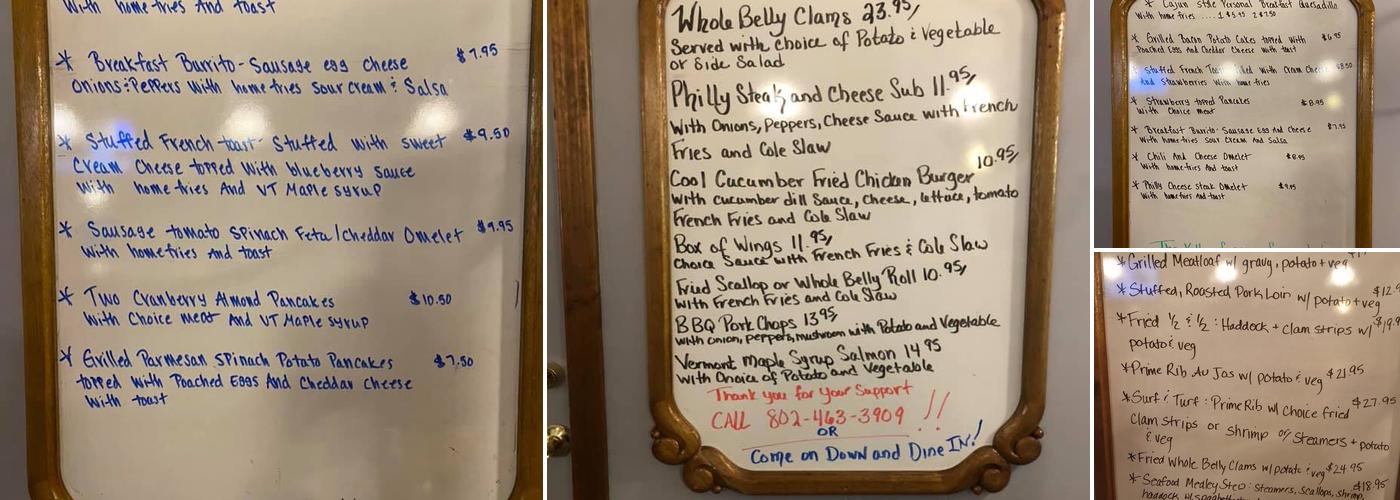 With homefries And toast
* Breakfast Burrito - Sausage egg cheese $7.95
Onions & Peppers With homefries Sour Cream & Salsa
* Stuffed French toast - Stuffed with sweet $9.50
Cream Cheese topped With blueberry sauce
With homefries And VT Maple syrup
* Sausage tomato Spinach Feta/Cheddar Omelet $9.95
With homefries And toast
* Two Cranberry Almond Pancakes $10.50
With Choice meat And VT Maple syrup
* Grilled Parmesan Spinach Potato Pancakes $7.50
topped With Poached Eggs And Cheddar Cheese
With toast
Whole Belly Clams 23.95/
Served with choice of Potato & Vegetable
or Side Salad
Philly Steak and Cheese Sub 11.95/
With Onions, Peppers, Cheese Sauce with French
Fries and Cole Slaw
10.95/
Cool Cucumber Fried Chicken Burger
with cucumber dill Sauce, Cheese, lettuce, tomato
French Fries and Cole Slaw
Box of Wings 11.95/
Choice Sauce with French Fries & Cole Slaw
Fried Scallop or Whole Belly Roll 10.95/
with French Fries and Cole Slaw
BBQ Pork Chops 13.95/
with onion, peppers, mushroom with Potato and Vegetable
Vermont Maple Syrup Salmon 14.95
with Choice of Potato and Vegetable
Thank you for your Support
CALL 802-463-3909 !!
OR
Come on Down and Dine IN!
* Cajun Style Personal Breakfast Quesadilla
With homefries
* Grilled Bacon Potato Cakes topped With $6.95
Poached Eggs and Cheddar Cheese with toast
* Stuffed French Toast filled with Cream Cheese $8.50
And Strawberries With homefries
* Strawberry topped Pancakes $8.95
With Choice meat
* Breakfast Burrito - Sausage Egg And Cheese $7.95
With homefries Sour Cream And Salsa
* Chili And Cheese Omelet $8.95
With homefries And toast
* Philly Cheese Steak Omelet $9.95
With homefries And toast
* Grilled Meatloaf w/ gravy, potato + veg
* Stuffed, Roasted Pork Loin w/ potato + veg $12.9
* Fried 1/2 & 1/2 : Haddock + Clam strips w/ $19.9
potato & veg
* Prime Rib Au Jus w/ potato & veg $21.95
* Surf & Turf : Prime Rib w/ choice fried $27.95
Clam strips or shrimp or steamers + potato
& veg
* Fried Whole Belly Clams w/ potato & veg $24.95
* Seafood Medley Stew : steamers, scallops, shrimp, $18.95
haddock w/